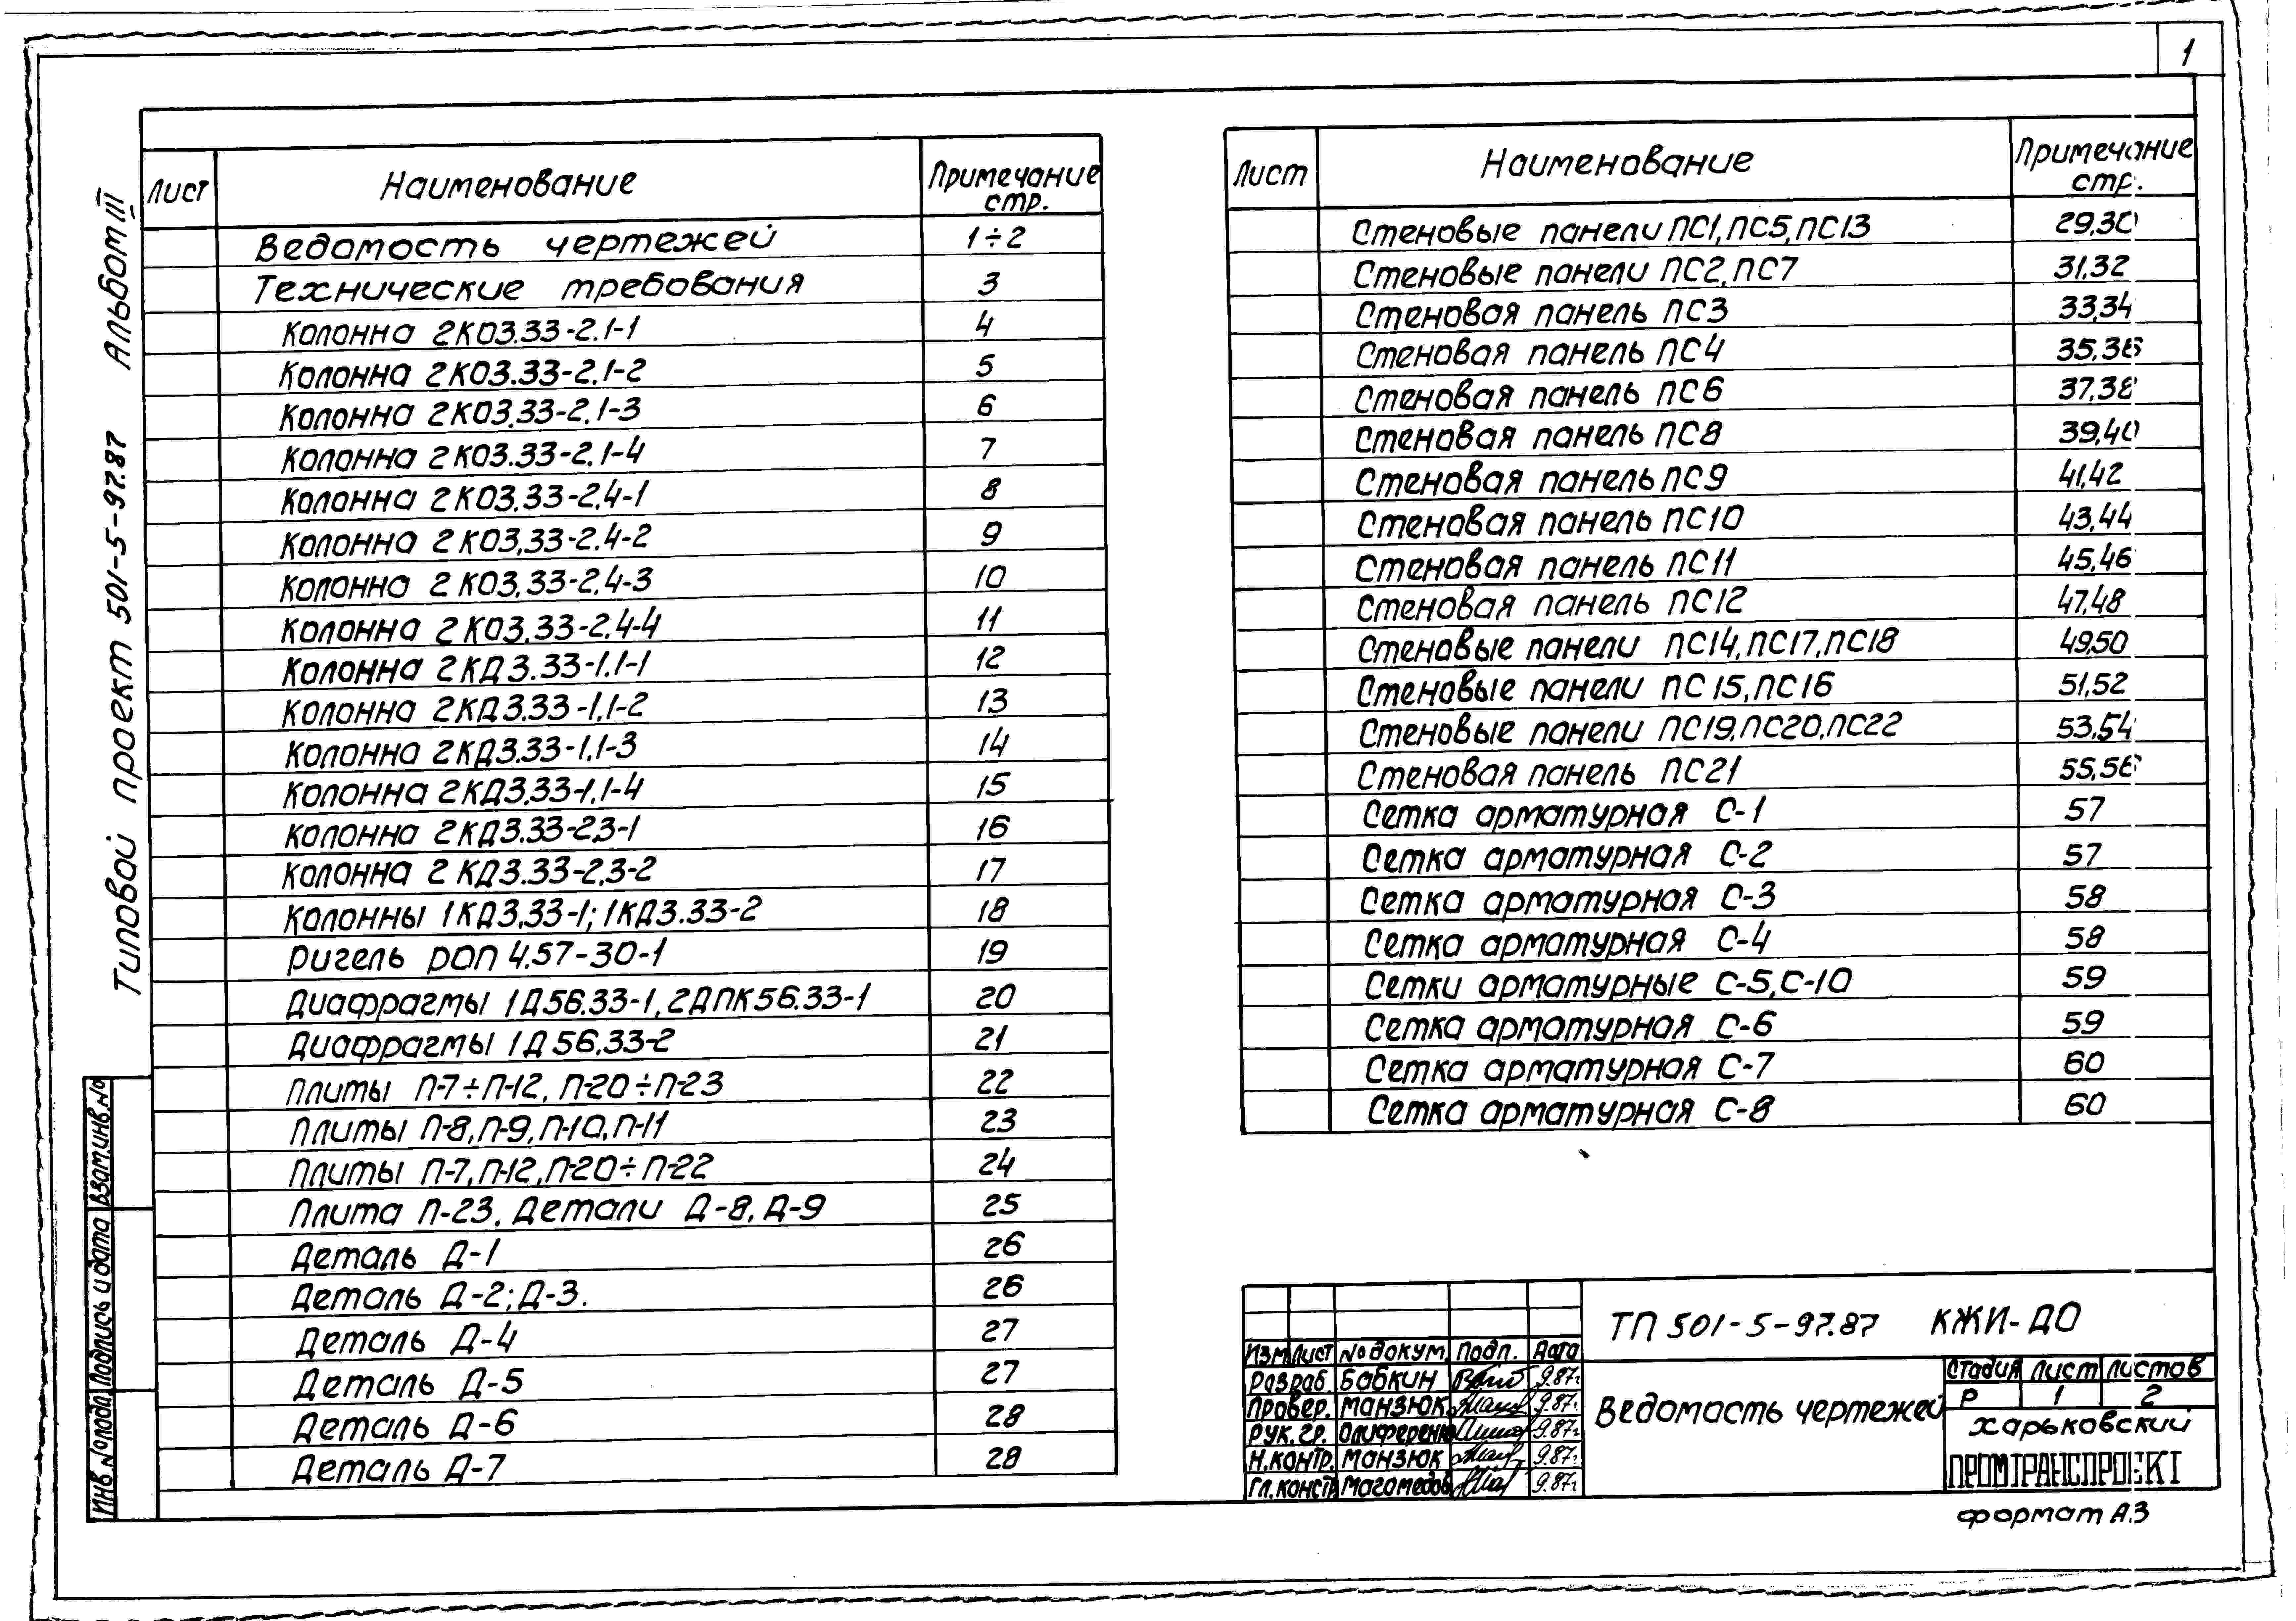 1
Типовой проект 501-5-97.87 Альбом III
Лист Наименование Примечание стр.
Ведомость чертежей 1÷2
Технические требования 3
Колонна 2КО3.33-2.1-1 4
Колонна 2КО3.33-2.1-2 5
Колонна 2КО3.33-2.1-3 6
Колонна 2КО3.33-2.1-4 7
Колонна 2КО3.33-2.4-1 8
Колонна 2КО3.33-2.4-2 9
Колонна 2КО3.33-2.4-3 10
Колонна 2КО3.33-2.4-4 11
Колонна 2КД3.33-1.1-1 12
Колонна 2КД3.33-1.1-2 13
Колонна 2КД3.33-1.1-3 14
Колонна 2КД3.33-1.1-4 15
Колонна 2КД3.33-2.3-1 16
Колонна 2КД3.33-2.3-2 17
Колонны 1КД3.33-1; 1КД3.33-2 18
Ригель РОП 4.57-30-1 19
Диафрагмы 1Д56.33-1, 2ДПК56.33-1 20
Диафрагмы 1Д56.33-2 21
Плиты П-7÷П-12, П-20÷П-23 22
Плиты П-8, П-9, П-10, П-11 23
Плиты П-7, П-12, П-20÷П-22 24
Плита П-23. Детали Д-8, Д-9 25
Деталь Д-1 26
Деталь Д-2; Д-3. 26
Деталь Д-4 27
Деталь Д-5 27
Деталь Д-6 28
Деталь Д-7 28
Лист Наименование Примечание стр.
Стеновые панели ПС1, ПС5, ПС13 29,30
Стеновые панели ПС2, ПС7 31,32
Стеновая панель ПС3 33,34
Стеновая панель ПС4 35,36
Стеновая панель ПС6 37,38
Стеновая панель ПС8 39,40
Стеновая панель ПС9 41,42
Стеновая панель ПС10 43,44
Стеновая панель ПС11 45,46
Стеновая панель ПС12 47,48
Стеновые панели ПС14, ПС17, ПС18 49,50
Стеновые панели ПС15, ПС16 51,52
Стеновые панели ПС19, ПС20, ПС22 53,54
Стеновая панель ПС21 55,56
Сетка арматурная С-1 57
Сетка арматурная С-2 57
Сетка арматурная С-3 58
Сетка арматурная С-4 58
Сетки арматурные С-5, С-10 59
Сетка арматурная С-6 59
Сетка арматурная С-7 60
Сетка арматурная С-8 60
Инв.№подл Подпись и дата Взам.инв.№
ТП 501-5-97.87 КЖИ-ДО
Изм Лист № докум. Подп. Дата
Разраб. Бабкин 9.87г.
Провер. Манзюк 9.87г.
Рук. гр. 9.87г.
Н.контр. Манзюк 9.87г.
Гл.констр Магомедов 9.87г.
Ведомость чертежей
Стадия Лист Листов
Р 1 2
Харьковский
ПРОМТРАНСПРОЕКТ
формат А3